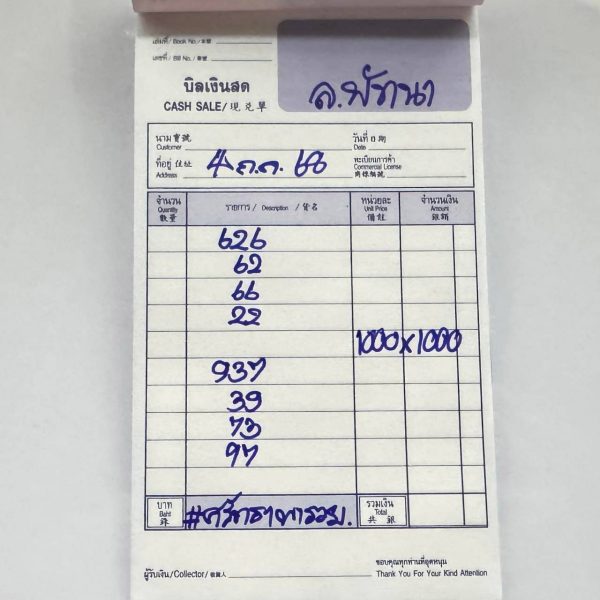 เล่มที่/ Book No./ 本號
เลขที่/ Bill No./ 書號
บิลเงินสด
CASH SALE/ 現兑單
ล.พัฒนา
นาม 寶號
Customer
วันที่ 日期
Date
ที่อยู่ 住址
Address
4 ต.ค. 68
ทะเบียนการค้า
Commercial License
商標牌號
จำนวน
Quantity
數量
รายการ / Description / 貨名
หน่วยละ
Unit Price
價錢
จำนวนเงิน
Amount
銀額
626
62
66
22
1000x1000
937
39
73
97
บาท
Baht
銖
#ศรัทธาพารวย.
รวมเงิน
Total
共銀
ผู้รับเงิน/Collector/ 收銀人
ขอบคุณทุกท่านที่อุดหนุน
Thank You For Your Kind Attention